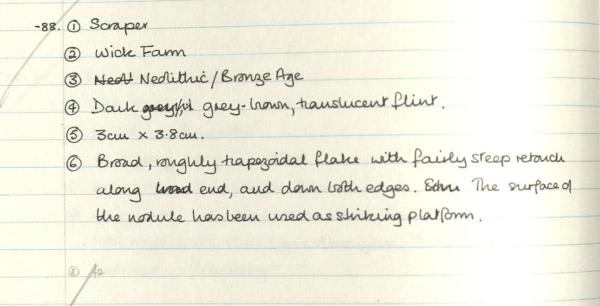 -88. ① Scraper
② Wick Farm
③ Neolithic/Bronze Age
④ Dark grey-brown, translucent flint.
⑤ 3cm × 3.8cm.
⑥ Broad, roughly trapezoidal flake with fairly steep retouch
along end, and down both edges. The surface of
the nodule has been used as striking platform.
⑧ A2